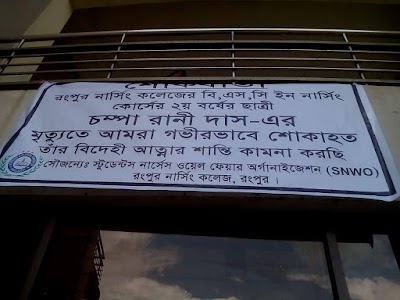 শোকবার্তা
রংপুর নার্সিং কলেজের বি,এস,সি ইন নার্সিং
কোর্সের ২য় বর্ষের ছাত্রী
চম্পা রানী দাস-এর
মৃত্যুতে আমরা গভীরভাবে শোকাহত
তাঁর বিদেহী আত্নার শান্তি কামনা করছি
সৌজন্যেঃ স্টুডেন্টস নার্সেস ওয়েল ফেয়ার অর্গানাইজেশন (SNWO)
রংপুর নার্সিং কলেজ, রংপুর ।